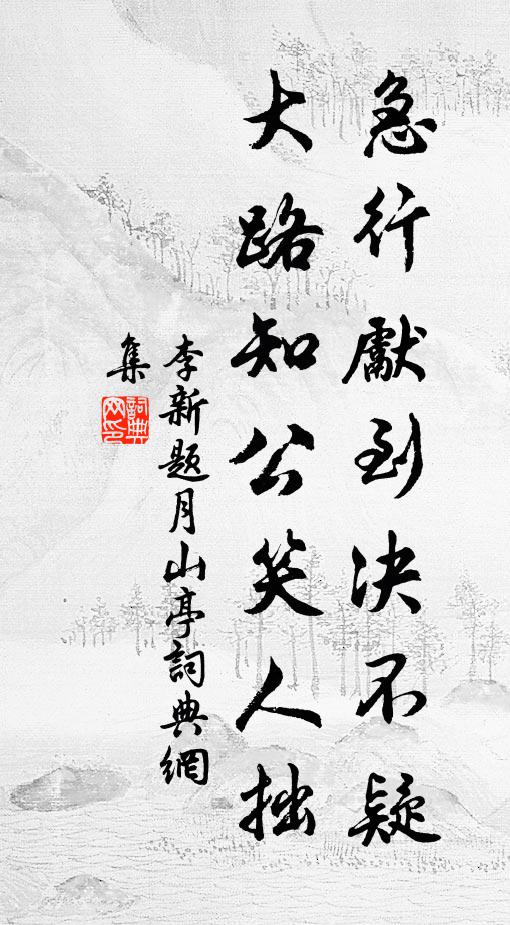 急行獻到决不疑
大路知公笑人拙
李新题月山亭詞典網
集
詞典
网印